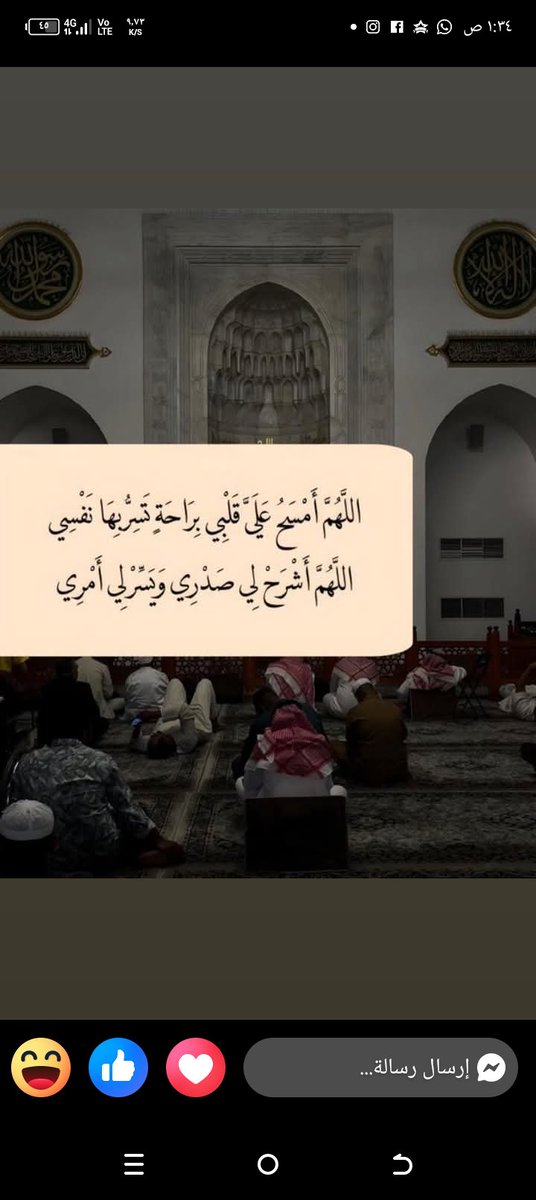 ١:٣٤ ص
٩,٧٣ K/S
Vo LTE
4G
٤٥
اللَّهُمَّ أَمْسَحُ عَلَىَّ قَلْبِي بِرَاحَةٍ تَسِرُّبِهَا نَفْسِي
اللَّهُمَّ أَشْرَحْ لِي صَدْرِي وَيَسِّرْلِي أَمْرِي
إرسال رسالة...